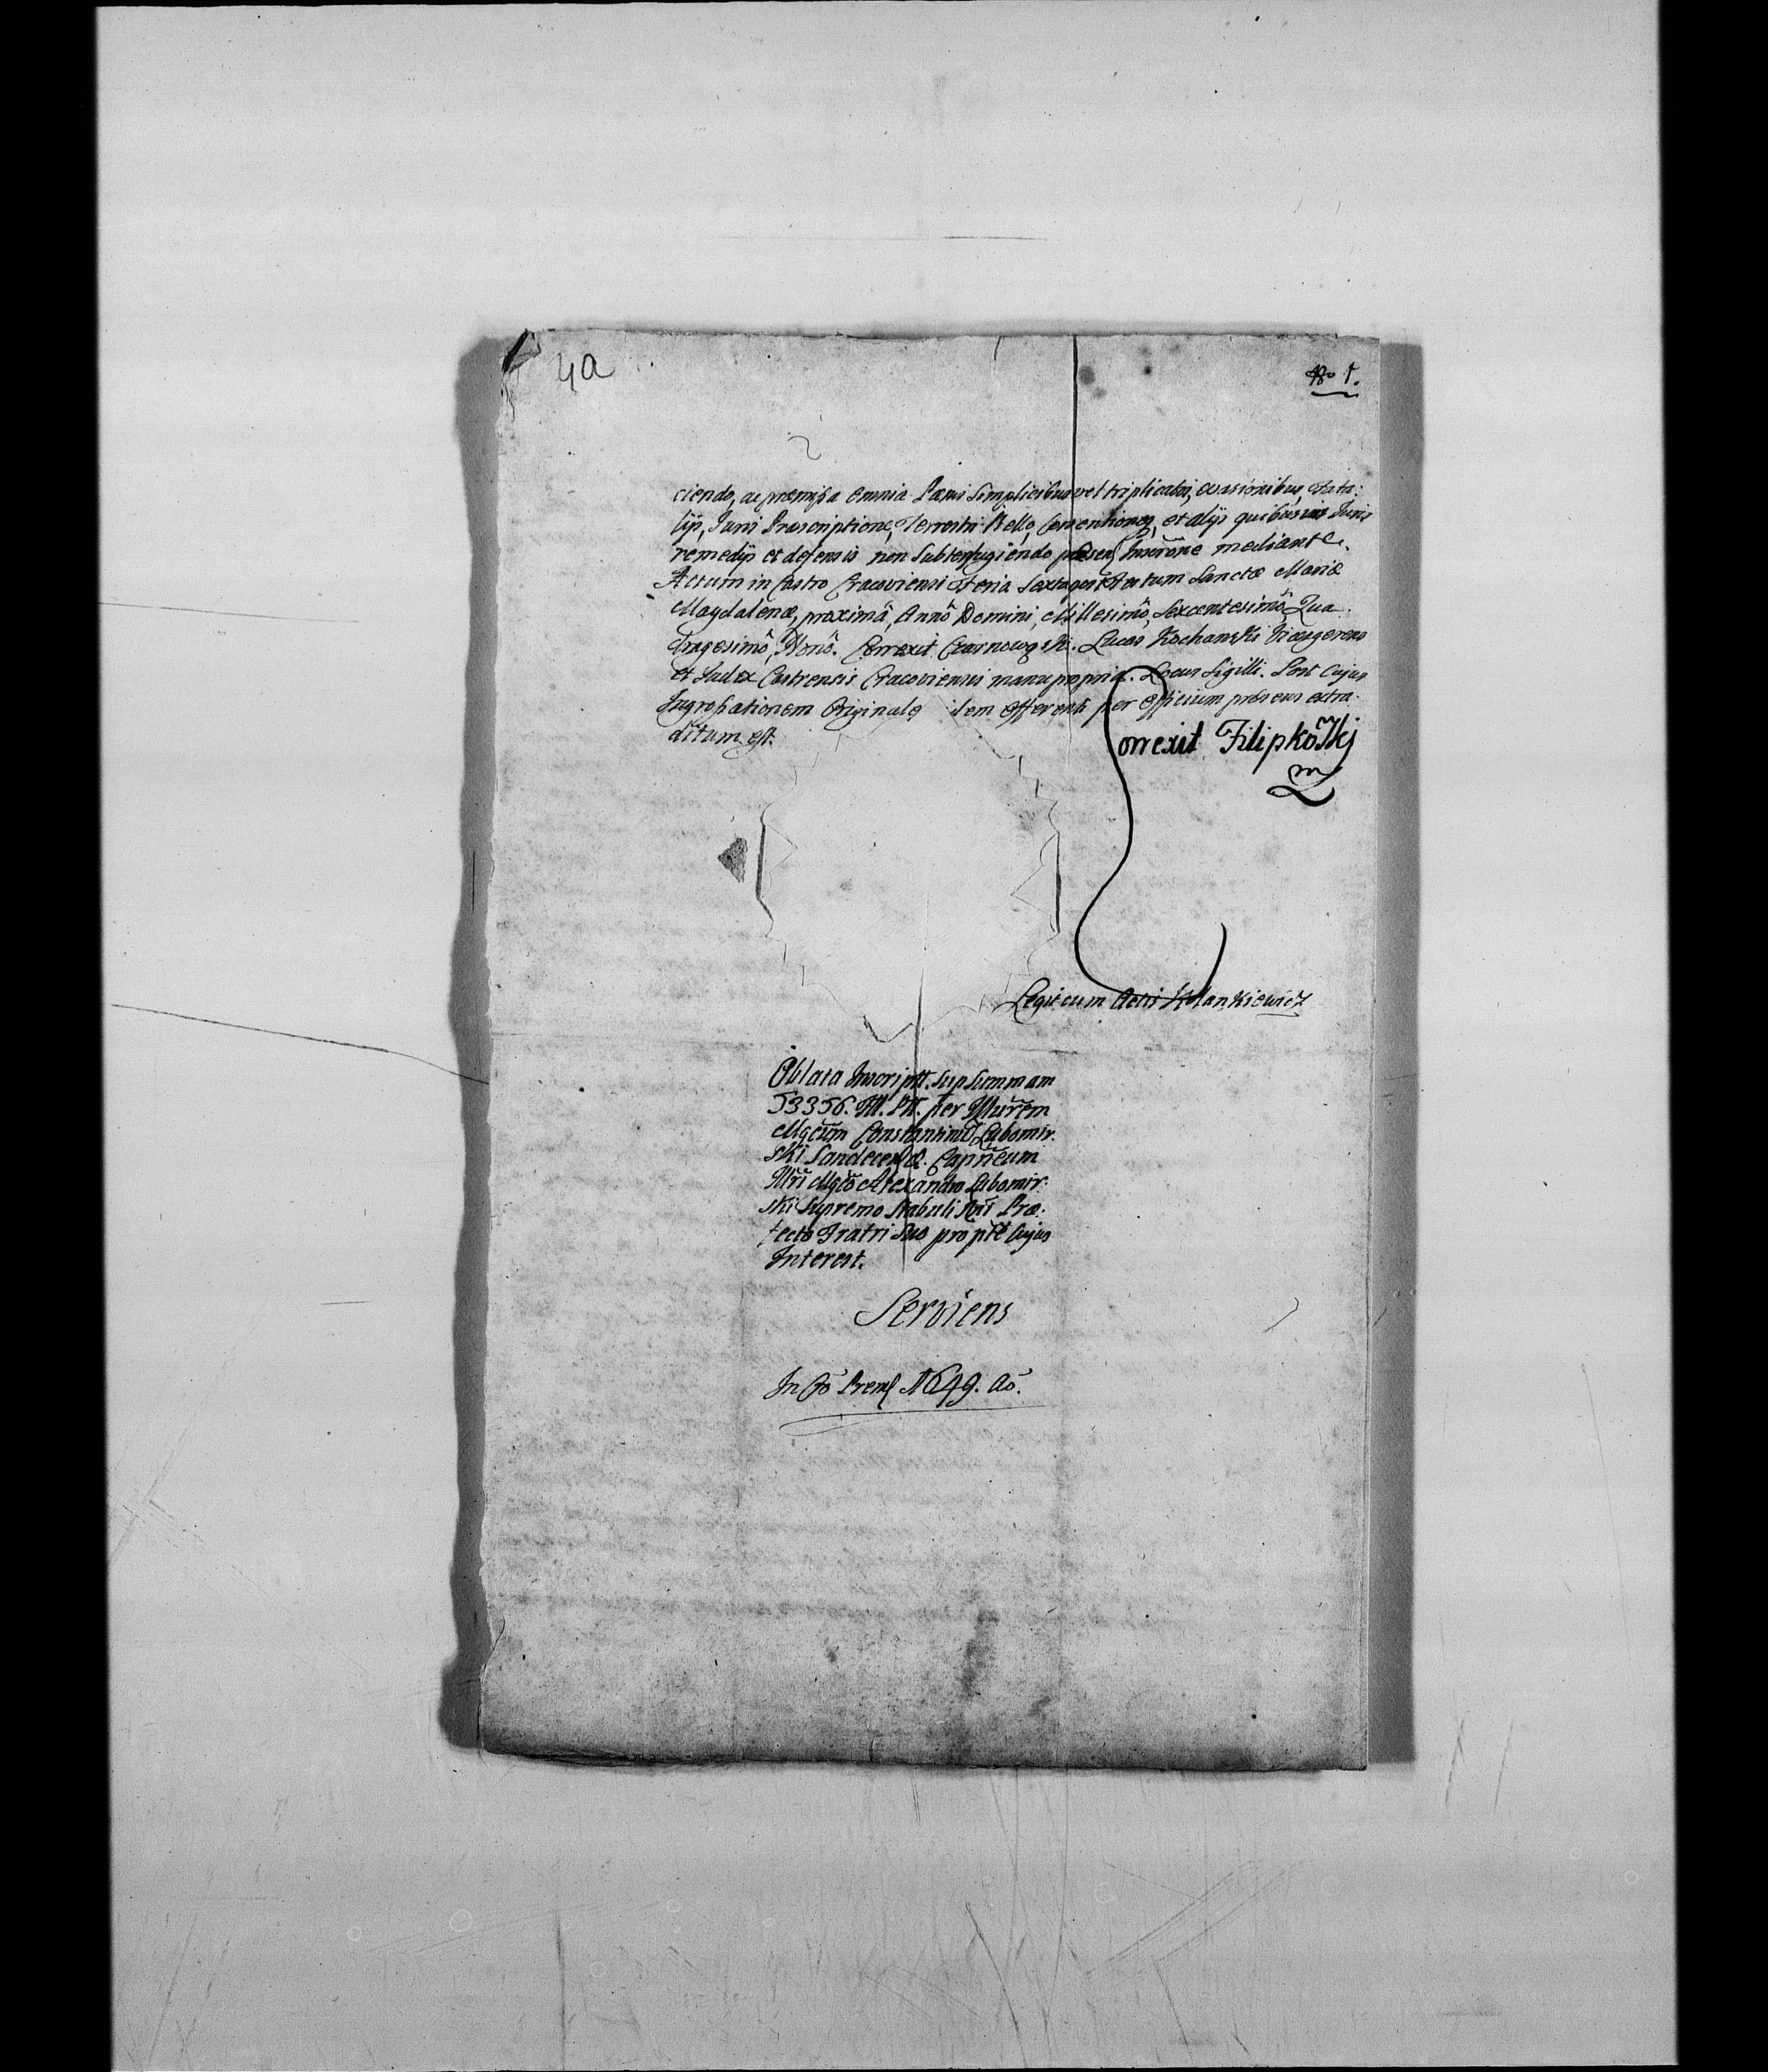 4a
No 1.
ciendo, ac præmissa omnia Pænis simplicibus vel triplicatis, evasionibus, data:
lijs, Juris Præscriptione, Terrestri Bello, Conventiones, et alijs quibusvis Juris
remedijs et defensis non subterfugiendo præsen Inscrõne mediante.
Actum in Castro Cracoviensi Feria Sexta post Festum Sanctæ Mariæ
Magdalenæ, proximâ, Annô Domini, Millesimô, Sexcentesimô, Qua
dragesimô, Nonô. Correxit Czarnowski. Lucas Kochanski Vicesgerens
et Judex Castrensis Cracoviensis manu propria. Locus Sigilli. Post Cujus
Ingrossationem Originale idem Offerenti per Officium præsens extra:
ditum est.
Correxit Filipkowskj
mp
Legit cum Actis Kolankiewicz
Oblata Inscriptt. sup Summam
53356. fll. Pll. per Illŭrem
Mgcŭm Constantinũ Lubomir:
ski Sandecen &. Capñeum
Illri Mgco Alexandro Lubomir:
ski Supremo Stabuli Rni Præ:
fecto Fratri Suo pro pte Cujus
Interest.
Serviens
In Co Prems 1649. Ao.